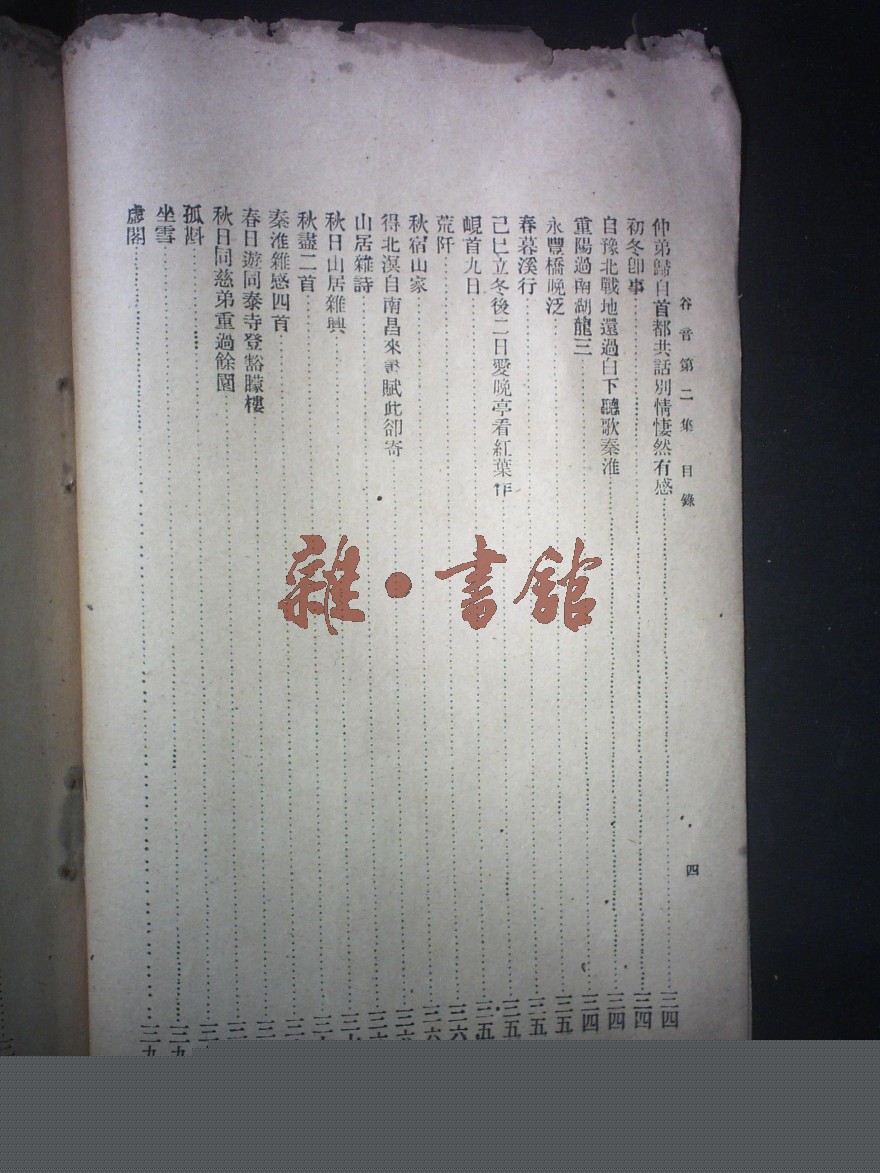 谷音第二集目錄
四
仲弟歸自首都共話別情悽然有感……三四
初冬卽事……三四
自豫北戰地還過白下聽歌秦淮……三四
重陽過南湖龍三……三四
永豐橋晩泛……三五
春暮溪行……三五
己巳立冬後二日愛晩亭看紅葉作……三五
峴首九日……三五
荒阡……三六
秋宿山家……三六
得北溟自南昌來書賦此卻寄……三六
山居雜詩……三
秋日山居雜興……三
秋盡二首……三
秦淮雜感四首……三
春日遊同泰寺登豁矇樓……三
秋日同慈弟重過餘園……三
孤斟……三
坐雪……三九
虛閣……三九
雜·書館